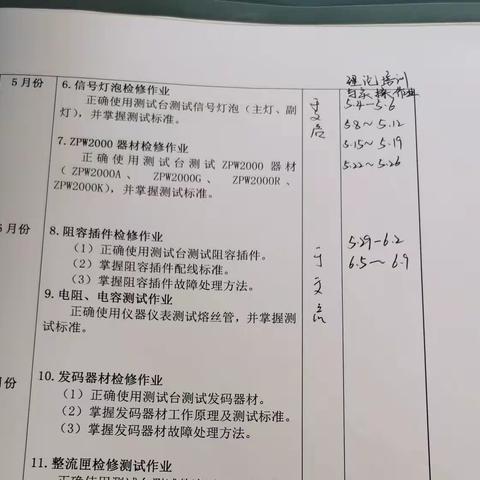 理论培训
与实操作业
5月份
6.信号灯泡检修作业
正确使用测试台测试信号灯泡（主灯、副
灯），并掌握测试标准。
5.4—5.6
5.8～5.12
7.ZPW2000器材检修作业
5.15～5.19
正确使用测试台测试ZPW2000器材
5.22～5.26
（ZPW2000A、 ZPW2000G、 ZPW2000R、
ZPW2000K），并掌握测试标准。
于
文
月份
8.阻容插件检修作业
5.29—6.2
（1）正确使用测试台测试阻容插件。
6.5～6.9
（2）掌握阻容插件配线标准。
（3）掌握阻容插件故障处理方法。
于
文
9.电阻、电容测试作业
正确使用仪器仪表测试熔丝管，并掌握测
试标准。
月份
10.发码器材检修作业
（1）正确使用测试台测试发码器材。
（2）掌握发码器材工作原理及测试标准。
（3）掌握发码器材故障处理方法。
11.整流匣检修测试作业